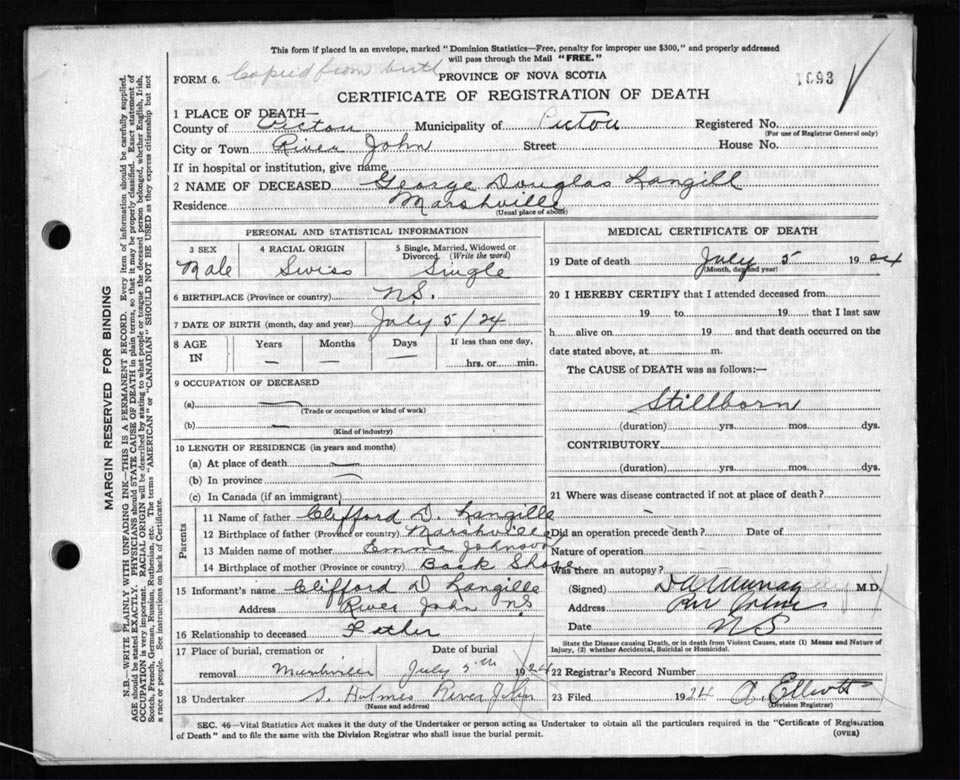 This form if placed in an envelope, marked "Dominion Statistics—Free, penalty for improper use $300," and properly addressed
will pass through the Mail "FREE."
FORM 6. Copied from birth
PROVINCE OF NOVA SCOTIA
1693
CERTIFICATE OF REGISTRATION OF DEATH
1 PLACE OF DEATH—
County of Pictou Municipality of Pictou Registered No.
(For use of Registrar General only)
City or Town River John Street House No.
If in hospital or institution, give name
2 NAME OF DECEASED George Douglas Langill
Residence Marshville
(Usual place of abode)
PERSONAL AND STATISTICAL INFORMATION
3 SEX 4 RACIAL ORIGIN 5 Single, Married, Widowed or
Divorced (Write the word)
Male Swiss Single
6 BIRTHPLACE (Province or country) N.S.
7 DATE OF BIRTH (month, day and year) July 5/24
8 AGE Years Months Days If less than one day,
IN — — — hrs. or min.
9 OCCUPATION OF DECEASED
(a) —
(Trade or occupation or kind of work)
(b) —
(Kind of industry)
10 LENGTH OF RESIDENCE (in years and months)
(a) At place of death —
(b) In province —
(c) In Canada (if an immigrant)
Parents
11 Name of father Clifford D. Langille
12 Birthplace of father (Province or country) Marshville
13 Maiden name of mother Emma Johnson
14 Birthplace of mother (Province or country) Back Shore
15 Informant's name Clifford D Langille
Address River John N.S
16 Relationship to deceased Father
17 Place of burial, cremation or Date of burial
removal Marshville July 5th 1924
18 Undertaker S. Holmes River John
(Name and address)
MEDICAL CERTIFICATE OF DEATH
19 Date of death July 5 1924
(Month, day and year)
20 I HEREBY CERTIFY that I attended deceased from
19 to 19 that I last saw
h alive on 19 and that death occurred on the
date stated above, at m.
The CAUSE of DEATH was as follows:—
Stillborn
(duration) yrs. mos. dys.
CONTRIBUTORY
(duration) yrs. mos. dys.
21 Where was disease contracted if not at place of death?
—
Did an operation precede death? Date of
Nature of operation
Was there an autopsy?
(Signed) D A Murray M.D.
Address Riv John
Date N S
State the Disease causing Death, or in death from Violent Causes, state (1) Means and Nature of
Injury, (2) whether Accidental, Suicidal or Homicidal.
22 Registrar's Record Number
23 Filed 1924 A. Elliott
(Division Registrar)
SEC. 46—Vital Statistics Act makes it the duty of the Undertaker or person acting as Undertaker to obtain all the particulars required in the "Certificate of Registration
of Death" and to file the same with the Division Registrar who shall issue the burial permit.
(OVER)
MARGIN RESERVED FOR BINDING
N.B.—WRITE PLAINLY WITH UNFADING INK—THIS IS A PERMANENT RECORD. Every item of information should be carefully supplied.
AGE should be stated EXACTLY. PHYSICIANS should STATE CAUSE OF DEATH in plain terms, so that it may be properly classified. Exact statement of
OCCUPATION is very important. RACIAL ORIGIN will be described by stating to what people or tongue the deceased person belonged, whether English, Irish,
Scotch, French, German, Russian, Ruthenian, etc. The terms "AMERICAN" or "CANADIAN" SHOULD NOT BE USED as they express citizenship but not
a race or people. See instructions on back of Certificate.